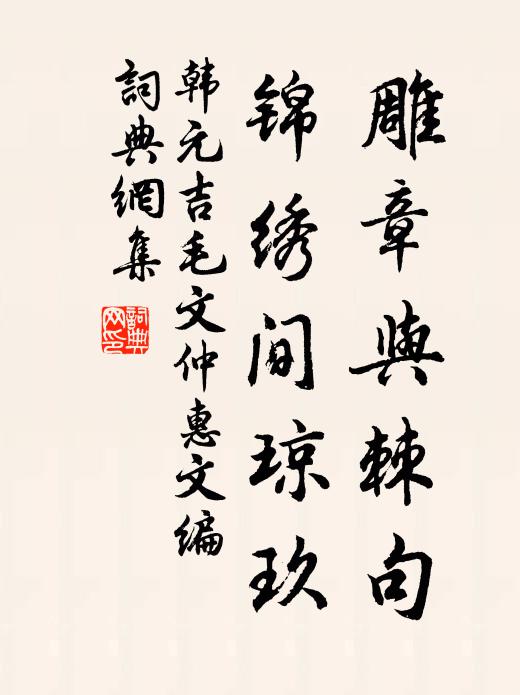 雕章與棘句
锦绣间琼玖
韩元吉毛文仲惠文编
詞典網集
詞典网印